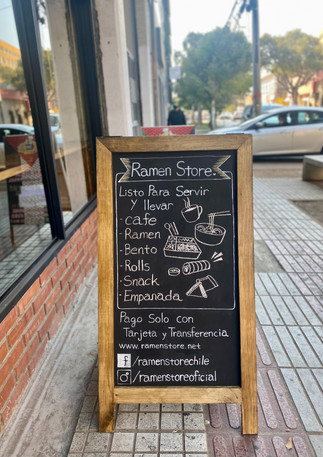 Ramen Store.
Listo Para Servir
Y llevar
· cafe
· Ramen
· Bento
· Rolls
· Snack
· Empanada
Pago Solo con
Tarjeta y Transferencia
www.ramenstore.net
f /ramenstorechile
/ramenstoreoficial